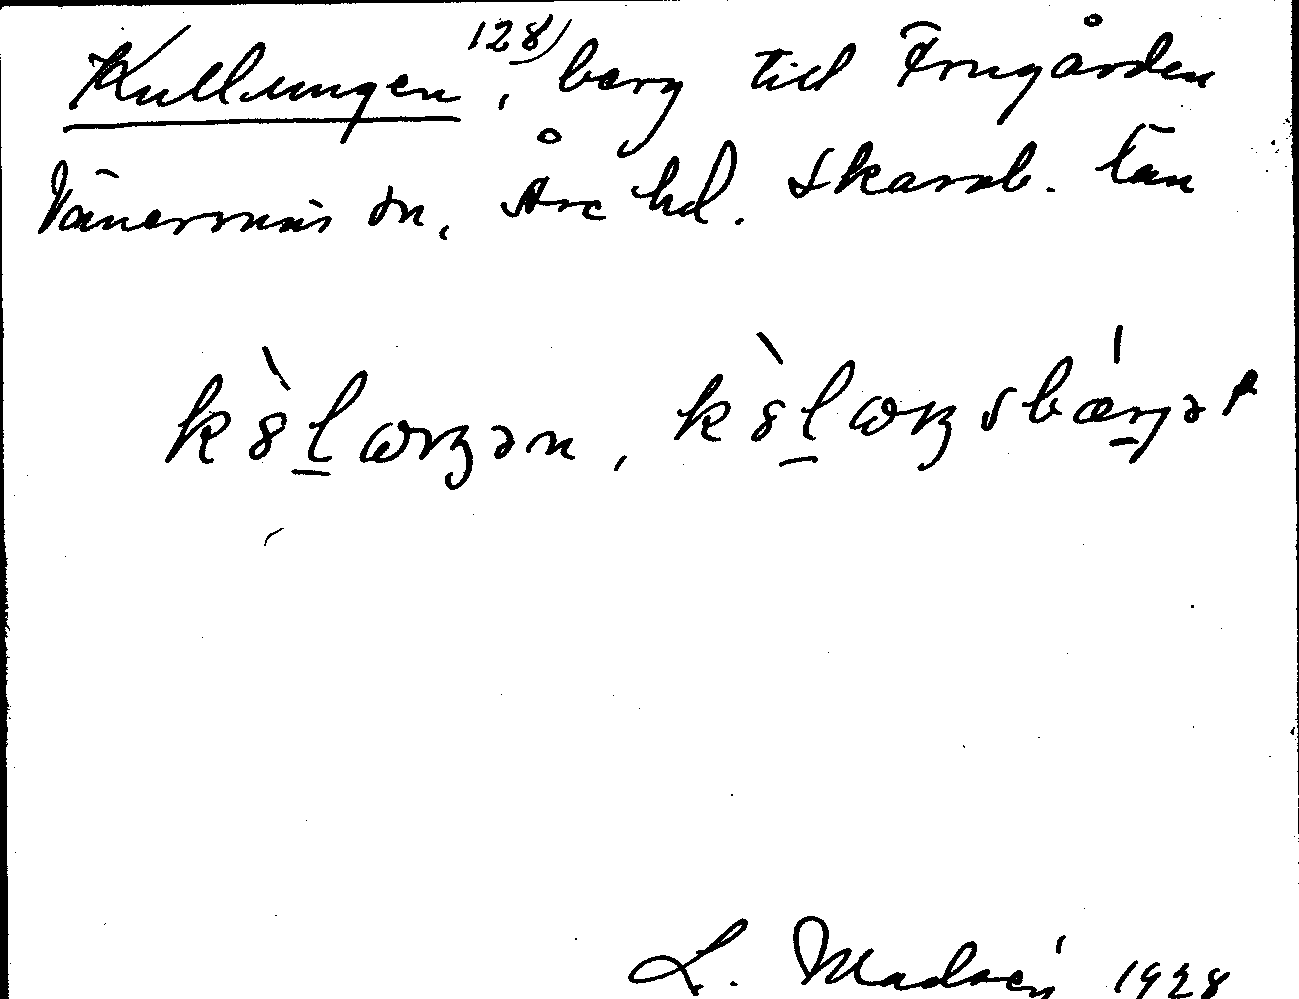 Kullungen 128), berg till Frugården
Vänersnäs sn, Åse hd. Skarab. län
L. Madsén 1928